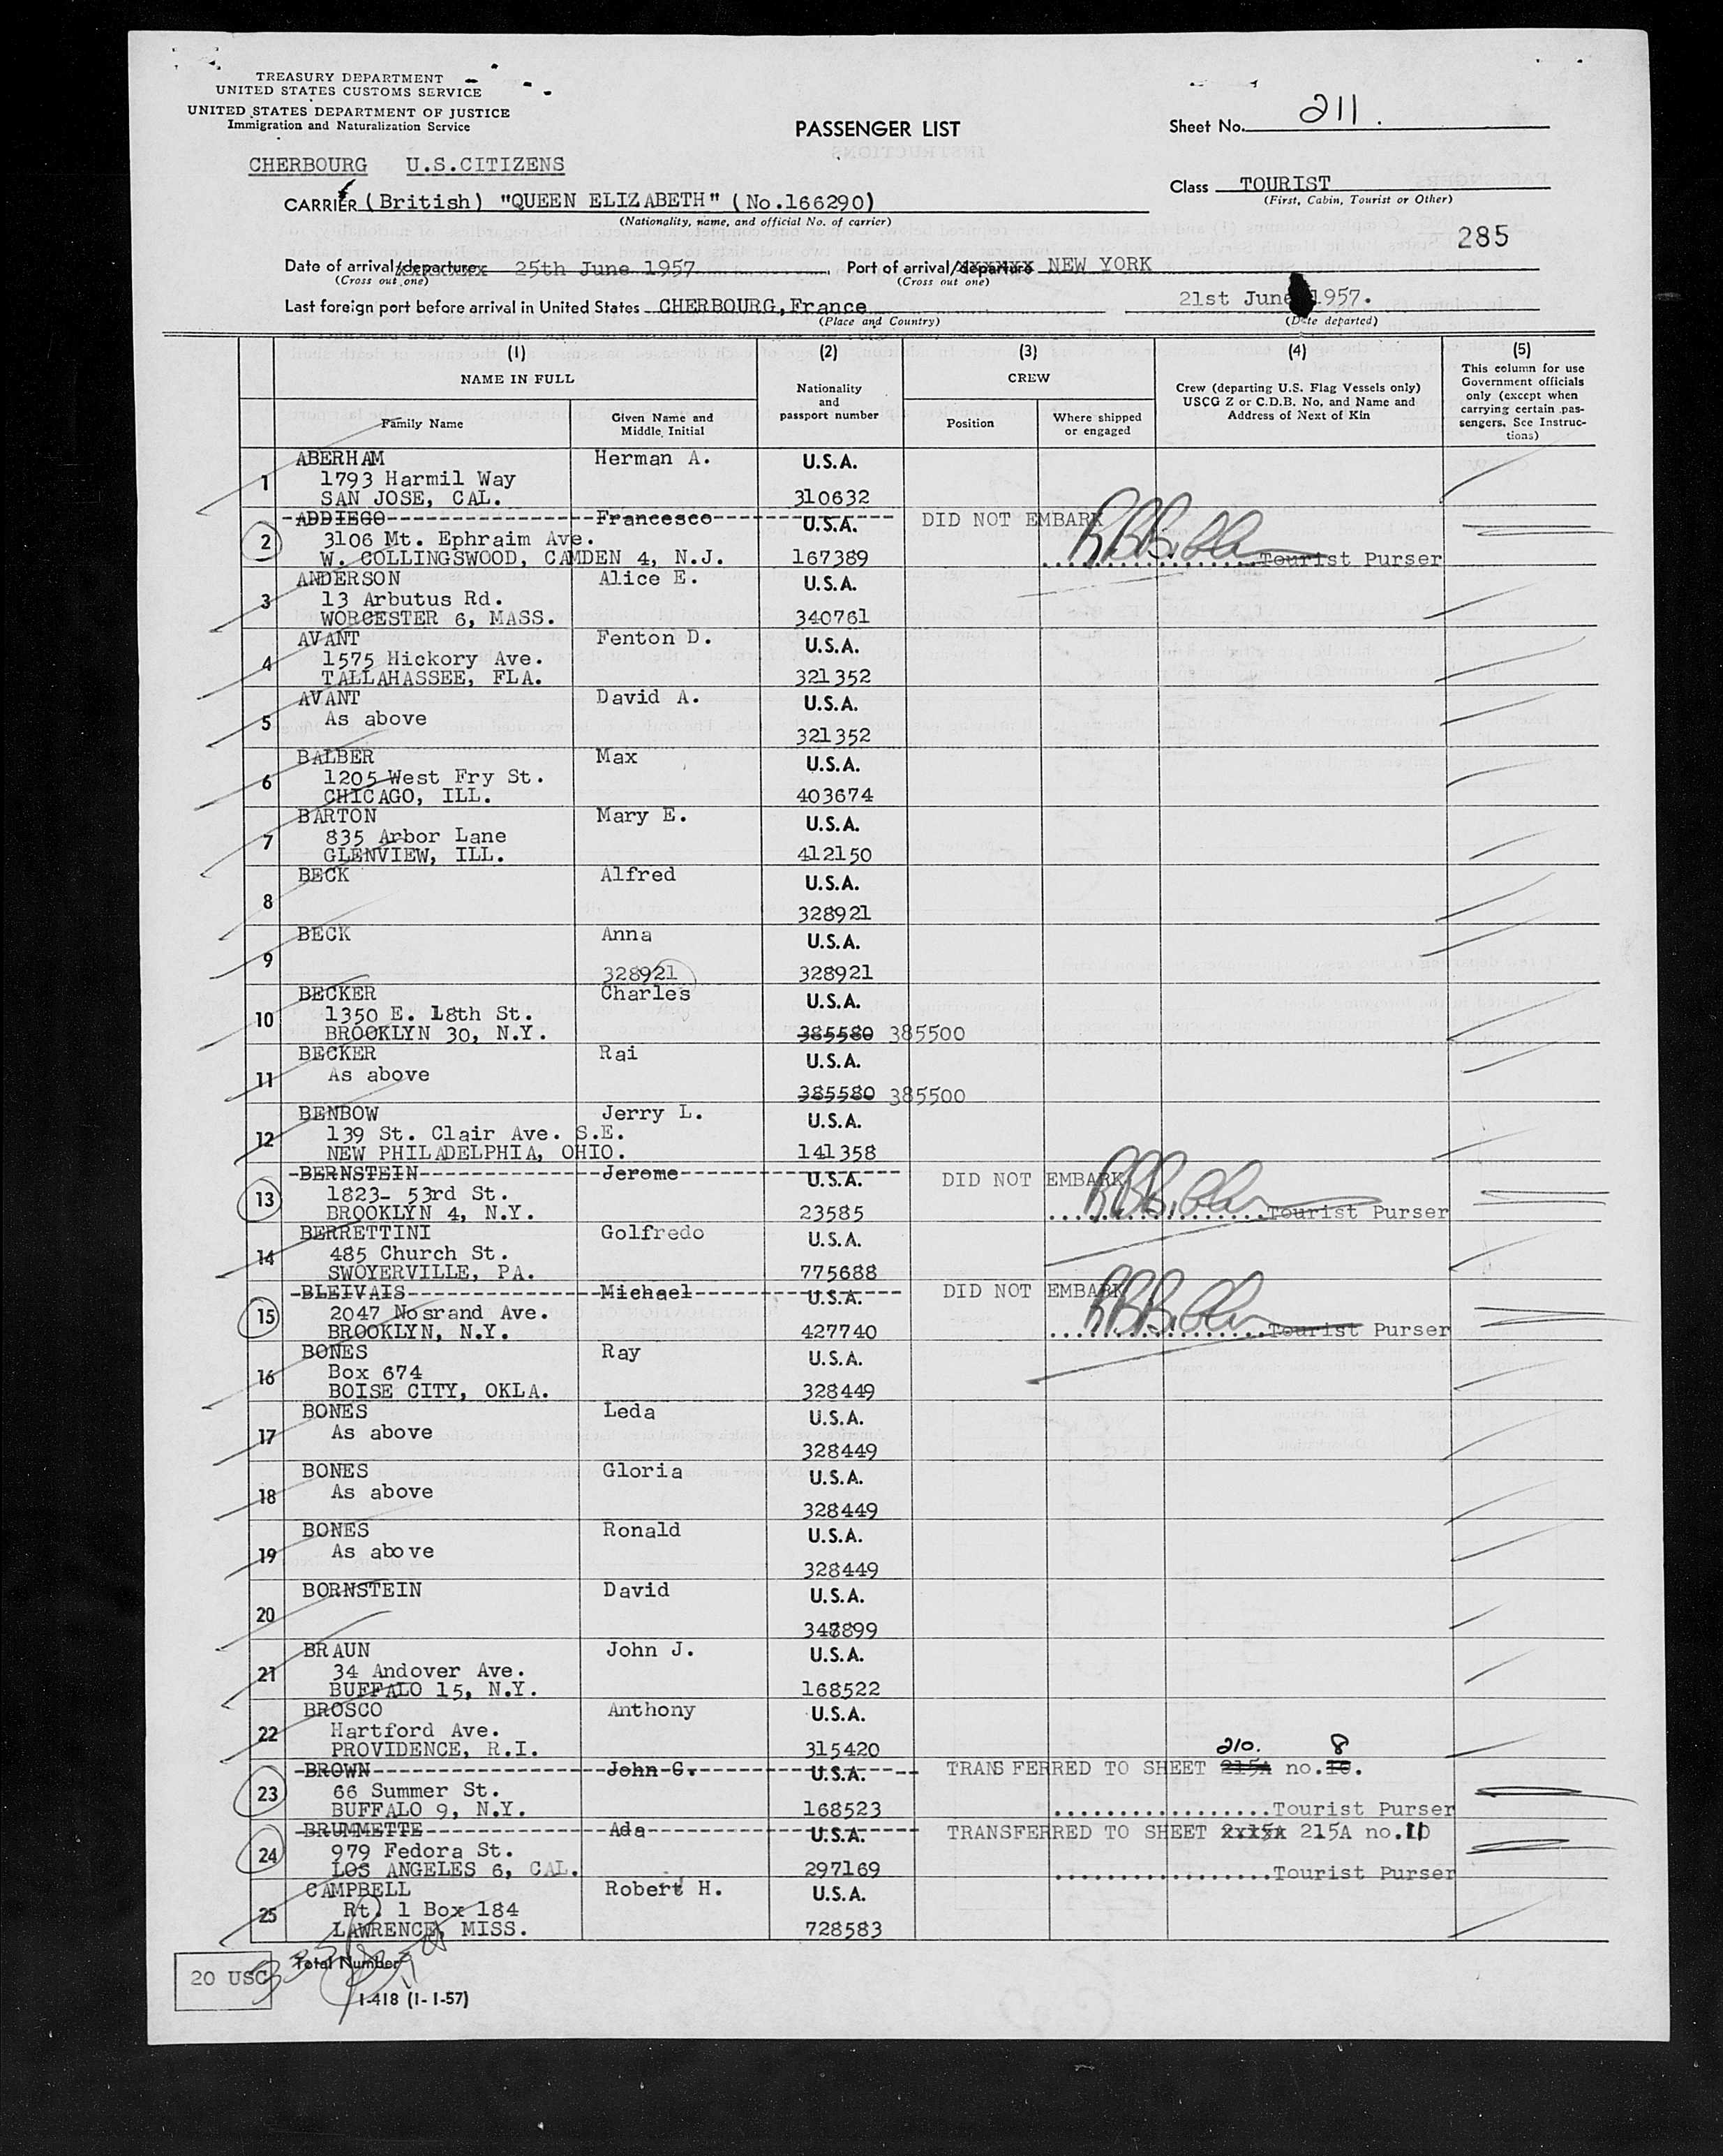 TREASURY DEPARTMENT
UNITED STATES CUSTOMS SERVICE
UNITED STATES DEPARTMENT OF JUSTICE
Immigration and Naturalization Service
PASSENGER LIST
Sheet No. 211.
CHERBOURG U.S.CITIZENS
Class TOURIST
(First, Cabin, Tourist or Other)
CARRIER (British) "QUEEN ELIZABETH" (No.166290)
(Nationality, name, and official No. of carrier)
285
Date of arrival/departure 25th June 1957 Port of arrival/departure NEW YORK
(Cross out one) (Cross out one)
Last foreign port before arrival in United States CHERBOURG, France 21st June 1957.
(Place and Country) (Date departed)
(1) (2) (3) (4) (5)
NAME IN FULL
Nationality and passport number
CREW
Crew (departing U.S. Flag Vessels only) USCG Z or C.D.B. No. and Name and Address of Next of Kin
This column for use Government officials only (except when carrying certain passengers. See Instructions)
Family Name Given Name and Middle Initial Position Where shipped or engaged
1 ABERHAM Herman A. U.S.A.
1793 Harmil Way
SAN JOSE, CAL. 310632
2 ADDIEGO Francesco U.S.A. DID NOT EMBARK
3106 Mt. Ephraim Ave.
W. COLLINGSWOOD, CAMDEN 4, N.J. 167389 Tourist Purser
3 ANDERSON Alice E. U.S.A.
13 Arbutus Rd.
WORCESTER 6, MASS. 340761
4 AVANT Fenton D. U.S.A.
1575 Hickory Ave.
TALLAHASSEE, FLA. 321352
5 AVANT David A. U.S.A.
As above
321352
6 BALBER Max U.S.A.
1205 West Fry St.
CHICAGO, ILL. 403674
7 BARTON Mary E. U.S.A.
835 Arbor Lane
GLENVIEW, ILL. 412150
8 BECK Alfred U.S.A.
328921
9 BECK Anna U.S.A.
328921 328921
10 BECKER Charles U.S.A.
1350 E. 18th St.
BROOKLYN 30, N.Y. 385580 385500
11 BECKER Rai U.S.A.
As above
385580 385500
12 BENBOW Jerry L. U.S.A.
139 St. Clair Ave. S.E.
NEW PHILADELPHIA, OHIO. 141358
13 BERNSTEIN Jerome U.S.A. DID NOT EMBARK
1823- 53rd St.
BROOKLYN 4, N.Y. 23585 Tourist Purser
14 BERRETTINI Golfredo U.S.A.
485 Church St.
SWOYERVILLE, PA. 775688
15 BLEIVAIS Michael U.S.A. DID NOT EMBARK
2047 Nosrand Ave.
BROOKLYN, N.Y. 427740 Tourist Purser
16 BONES Ray U.S.A.
Box 674
BOISE CITY, OKLA. 328449
17 BONES Leda U.S.A.
As above
328449
18 BONES Gloria U.S.A.
As above
328449
19 BONES Ronald U.S.A.
As above
328449
20 BORNSTEIN David U.S.A.
348899
21 BRAUN John J. U.S.A.
34 Andover Ave.
BUFFALO 15, N.Y. 168522
22 BROSCO Anthony U.S.A.
Hartford Ave.
PROVIDENCE, R.I. 315420
210. 8
23 BROWN John C. U.S.A. TRANSFERRED TO SHEET 215A no.10.
66 Summer St.
BUFFALO 9, N.Y. 168523 Tourist Purser
24 BRUMMETTE Ada U.S.A. TRANSFERRED TO SHEET 215A no.10
979 Fedora St.
LOS ANGELES 6, CAL. 297169 Tourist Purser
25 CAMPBELL Robert H. U.S.A.
Rt. 1 Box 184
LAWRENCE, MISS. 728583
Total Number
20 USC
I-418 (1-1-57)